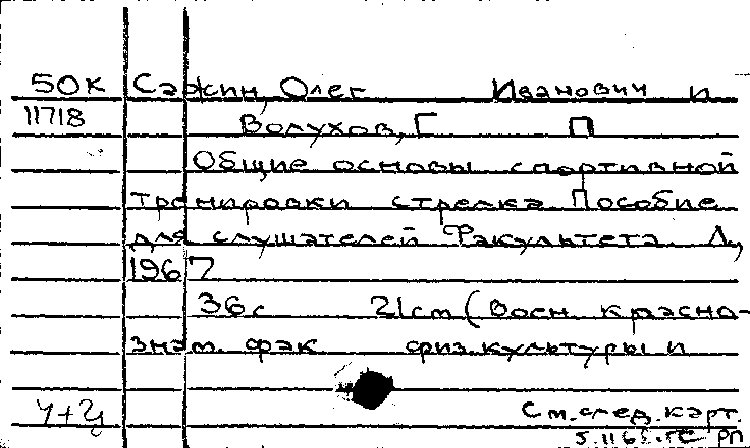 50К Сажин, Олег Иванович и
11718 Волухов, Г П
Общие основы спортивной
тренировки стрелка Пособие
для слушателей Факультета Л.,
1967
36с 21см (Воен. красно-
знам. фак физ.культуры и
См.след.карт.
РП